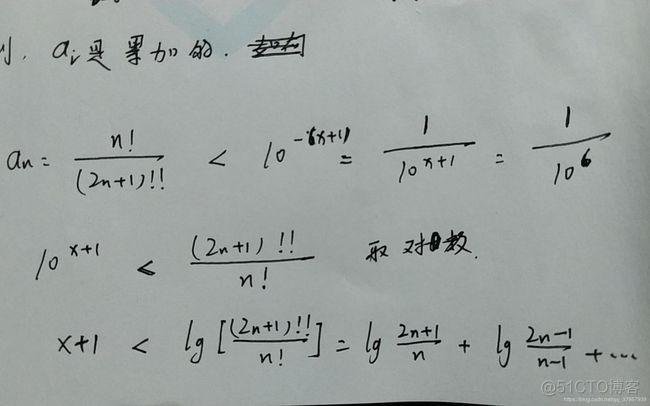 aᵢ是累加的.
aₙ = n! / (2n+1)!! < 10^-(x+1) = 1 / 10^(x+1) = 1 / 10^6
10^(x+1) < (2n+1)!! / n! 取对数.
x+1 < lg[(2n+1)!! / n!] = lg (2n+1)/n + lg (2n-1)/(n-1) + ...
@51CTO博客